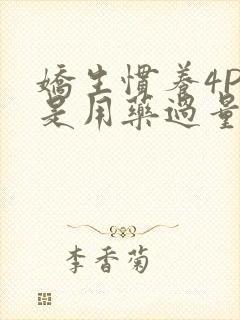 嬌生慣養4P
是用藥過量
李香菊